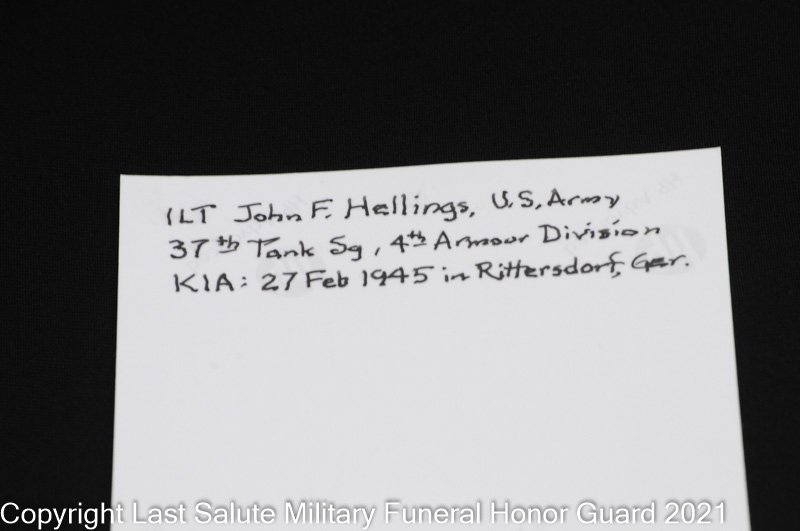 1LT John F. Hellings, U.S. Army
37th Tank Sq, 4th Armour Division
KIA: 27 Feb 1945 in Rittersdorf, Ger.
Copyright Last Salute Military Funeral Honor Guard 2021